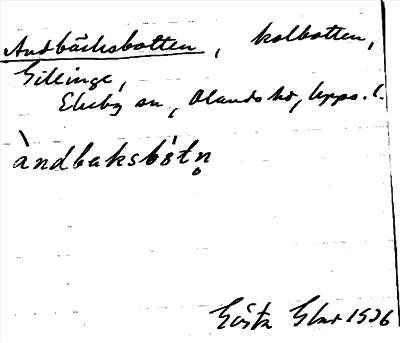 Andbäcksbotten, kolbotten,
Gillinge,
Ekeby sn, Olands hd, Upps. l.
àndbaksbòtn̥
Gösta 1936